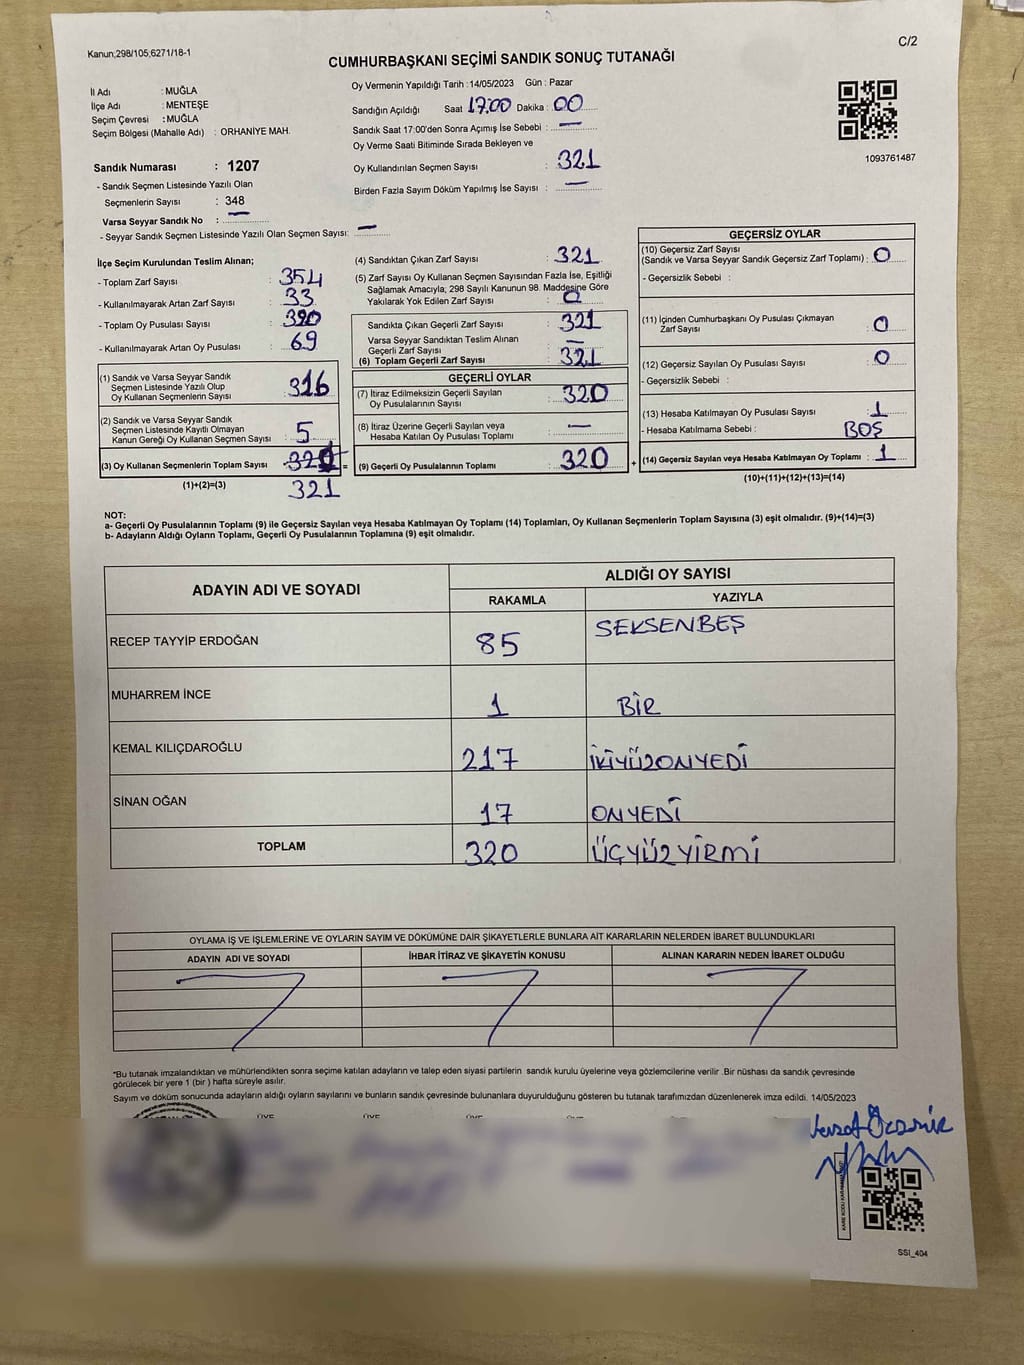 Kanun;298/105,6271/18-1
C/2
CUMHURBAŞKANI SEÇİMİ SANDIK SONUÇ TUTANAĞI
İl Adı : MUĞLA
İlçe Adı : MENTEŞE
Seçim Çevresi : MUĞLA
Seçim Bölgesi (Mahalle Adı) : ORHANİYE MAH.
Sandık Numarası : 1207
- Sandık Seçmen Listesinde Yazılı Olan
Seçmenlerin Sayısı : 348
Varsa Seyyar Sandık No : —
- Seyyar Sandık Seçmen Listesinde Yazılı Olan Seçmen Sayısı: —
Oy Vermenin Yapıldığı Tarih :14/05/2023 Gün : Pazar
Sandığın Açıldığı Saat 17:00 Dakika : 00
Sandık Saat 17:00'den Sonra Açımış İse Sebebi : —
Oy Verme Saati Bitiminde Sırada Bekleyen ve
Oy Kullandırılan Seçmen Sayısı : 321
Birden Fazla Sayım Döküm Yapılmış İse Sayısı : —
1093761487
İlçe Seçim Kurulundan Teslim Alınan;
- Toplam Zarf Sayısı : 354
- Kullanılmayarak Artan Zarf Sayısı : 33
- Toplam Oy Pusulası Sayısı : 390
- Kullanılmayarak Artan Oy Pusulası : 69
(1) Sandık ve Varsa Seyyar Sandık
Seçmen Listesinde Yazılı Olup
Oy Kullanan Seçmenlerin Sayısı : 316
(2) Sandık ve Varsa Seyyar Sandık
Seçmen Listesinde Kayıtlı Olmayan
Kanun Gereği Oy Kullanan Seçmen Sayısı : 5
(3) Oy Kullanan Seçmenlerin Toplam Sayısı : =
(1)+(2)=(3) 321
(4) Sandıktan Çıkan Zarf Sayısı : 321
(5) Zarf Sayısı Oy Kullanan Seçmen Sayısından Fazla İse, Eşitliği
Sağlamak Amacıyla; 298 Sayılı Kanunun 98. Maddesine Göre
Yakılarak Yok Edilen Zarf Sayısı : 0
Sandıkta Çıkan Geçerli Zarf Sayısı : 321
Varsa Seyyar Sandıktan Teslim Alınan
Geçerli Zarf Sayısı : —
(6) Toplam Geçerli Zarf Sayısı : 321
GEÇERLİ OYLAR
(7) İtiraz Edilmeksizin Geçerli Sayılan
Oy Pusulalarının Sayısı : 320
(8) İtiraz Üzerine Geçerli Sayılan veya
Hesaba Katılan Oy Pusulası Toplamı : —
(9) Geçerli Oy Pusulalarının Toplamı : 320 +
GEÇERSİZ OYLAR
(10) Geçersiz Zarf Sayısı
(Sandık ve Varsa Seyyar Sandık Geçersiz Zarf Toplamı) : 0
- Geçersizlik Sebebi :
(11) İçinden Cumhurbaşkanı Oy Pusulası Çıkmayan
Zarf Sayısı : 0
(12) Geçersiz Sayılan Oy Pusulası Sayısı : 0
- Geçersizlik Sebebi :
(13) Hesaba Katılmayan Oy Pusulası Sayısı : 1
- Hesaba Katılmama Sebebi : BOŞ
(14) Geçersiz Sayılan veya Hesaba Katılmayan Oy Toplamı : 1
(10)+(11)+(12)+(13)=(14)
NOT:
a- Geçerli Oy Pusulalarının Toplamı (9) ile Geçersiz Sayılan veya Hesaba Katılmayan Oy Toplamı (14) Toplamları, Oy Kullanan Seçmenlerin Toplam Sayısına (3) eşit olmalıdır. (9)+(14)=(3)
b- Adayların Aldığı Oyların Toplamı, Geçerli Oy Pusulalarının Toplamına (9) eşit olmalıdır.
ADAYIN ADI VE SOYADI ALDIĞI OY SAYISI
RAKAMLA YAZIYLA
RECEP TAYYİP ERDOĞAN 85 SEKSENBEŞ
MUHARREM İNCE 1 BİR
KEMAL KILIÇDAROĞLU 217 İKİYÜZONYEDİ
SİNAN OĞAN 17 ONYEDİ
TOPLAM 320 ÜÇYÜZYİRMİ
OYLAMA İŞ VE İŞLEMLERİNE VE OYLARIN SAYIM VE DÖKÜMÜNE DAİR ŞİKAYETLERLE BUNLARA AİT KARARLARIN NELERDEN İBARET BULUNDUKLARI
ADAYIN ADI VE SOYADI İHBAR İTİRAZ VE ŞİKAYETİN KONUSU ALINAN KARARIN NEDEN İBARET OLDUĞU
*Bu tutanak imzalandıktan ve mühürlendikten sonra seçime katılan adayların ve talep eden siyasi partilerin sandık kurulu üyelerine veya gözlemcilerine verilir .Bir nüshası da sandık çevresinde
görülecek bir yere 1 (bir ) hafta süreyle asılır.
Sayım ve döküm sonucunda adayların aldığı oyların sayılarını ve bunların sandık çevresinde bulunanlara duyurulduğunu gösteren bu tutanak tarafımızdan düzenlenerek imza edildi. 14/05/2023
ÜYE ÜYE ÜYE ÜYE
SSI_404